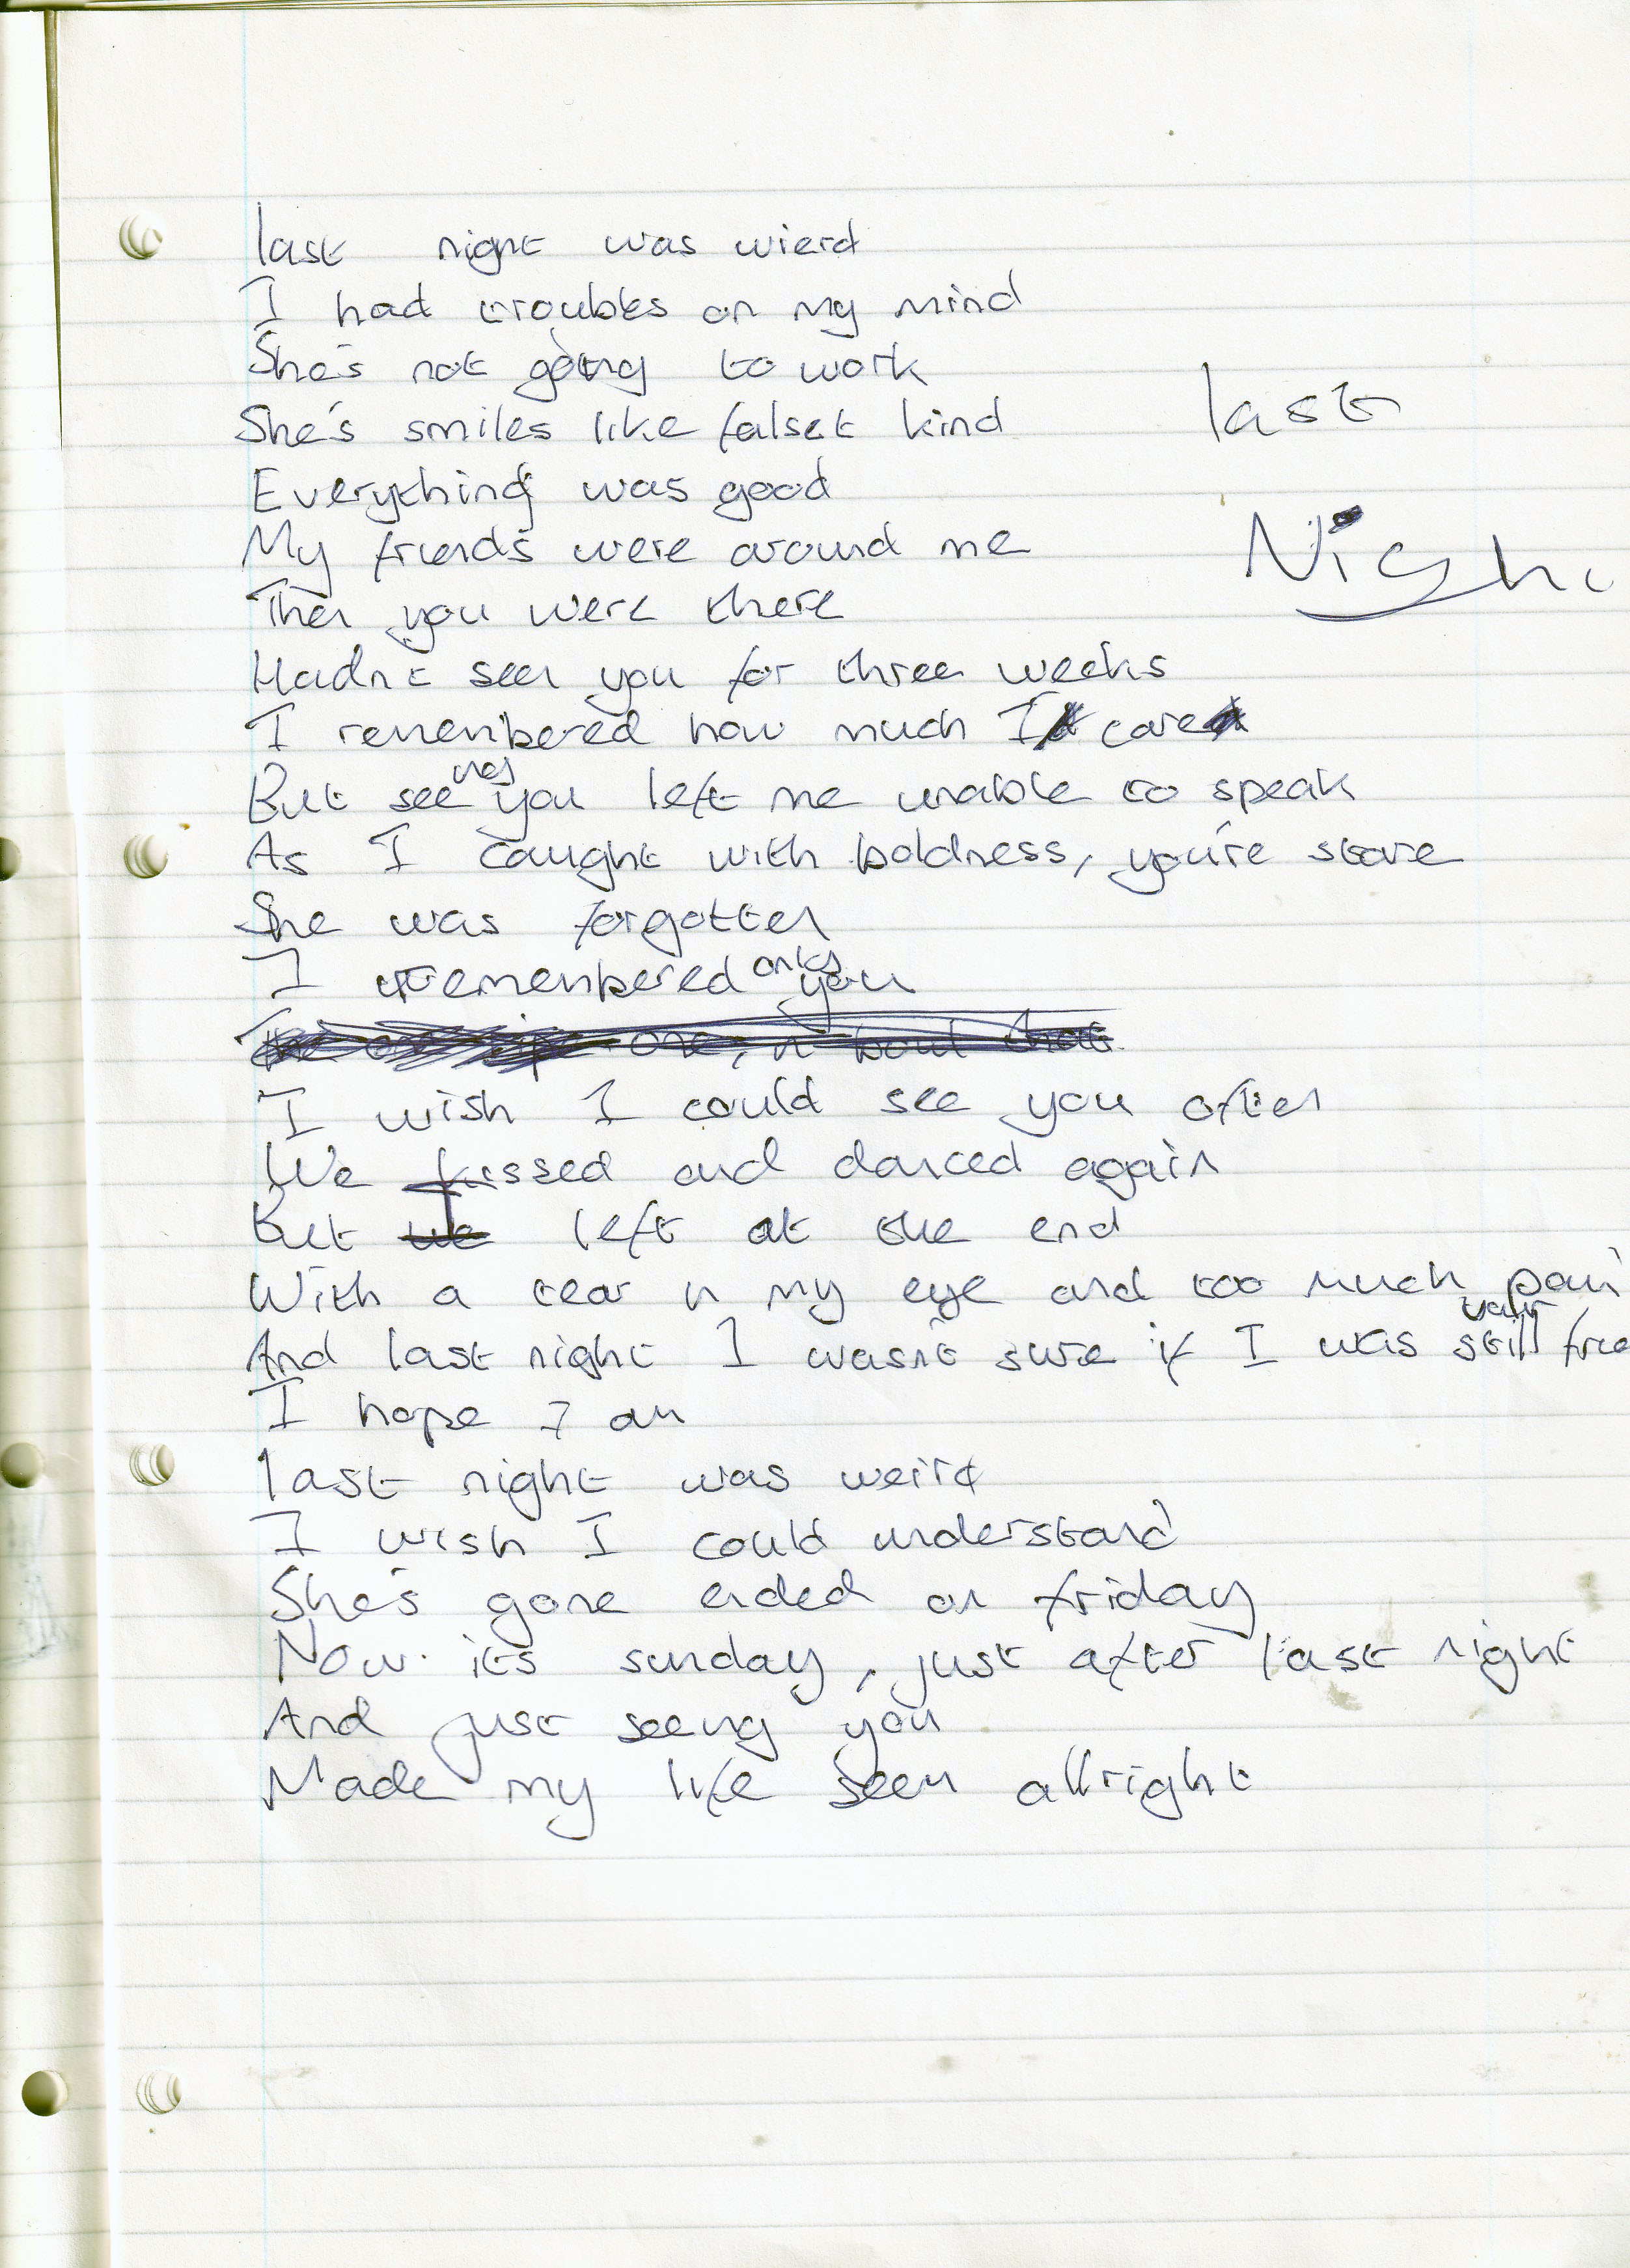 last night was wierd
I had troubles on my mind
She's not going to work
She's smiles like falset kind
last
Everything was good
My friends were around me
Night
Then you were there
Hadn't seen you for three weeks
I remembered how much I care
But seeing you left me unable to speak
As I caught with boldness, you're stare
She was forgotten
I remembered only you
I wish I could see you often
We kissed and danced again
But I left at the end
With a tear in my eye and too much pain
And last night I wasn't sure if I was still your
I hope I am
last night was weird
I wish I could understand
She's gone ended on friday
Now it's sunday, just after last night
And just seeing you
Made my life seem allright